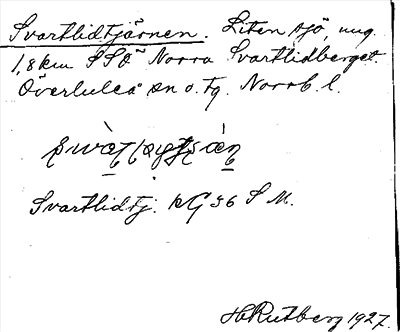 Svartlidtjärnen. Liten sjö, ung.
1,8 km SSÖ Norra Svartlidberget.
Överluleå sn o. tg. Norrb. l.
Svartlidtj. RG 36 S M.
H. Rutberg 1927.